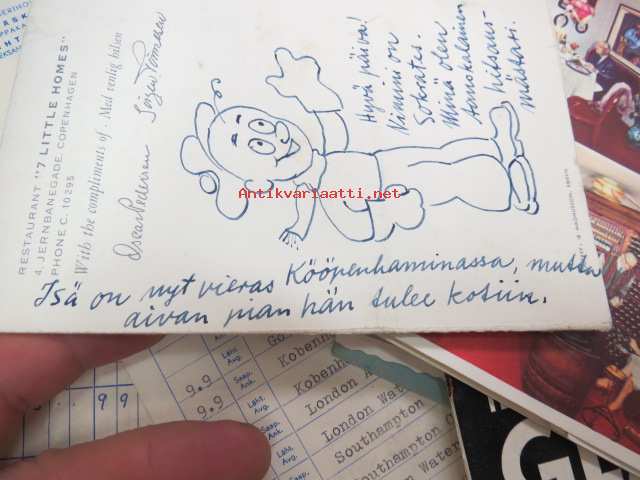 RESTAURANT "7 LITTLE HOMES"
4, JERNBANEGADE, COPENHAGEN
PHONE C. 10395
With the compliments of - Med venlig hilsen
Oscar Pedersen
Hyvä päivä!
Nimini on
Sokrates.
Minä olen
hitsaus-
mästari.
Antikvariaatti.net
Isä on nyt vieras Kööpenhaminassa, mutta
aivan pian hän tulee kotiin.
9 9
9.9
9.9
Läht.
Avg.
Saap.
Ank.
Läht.
Avg.
Saap.
Ank.
Läht.
Avg.
Kobenh
Kobenh
London
London Wat
Southampton
Southampton